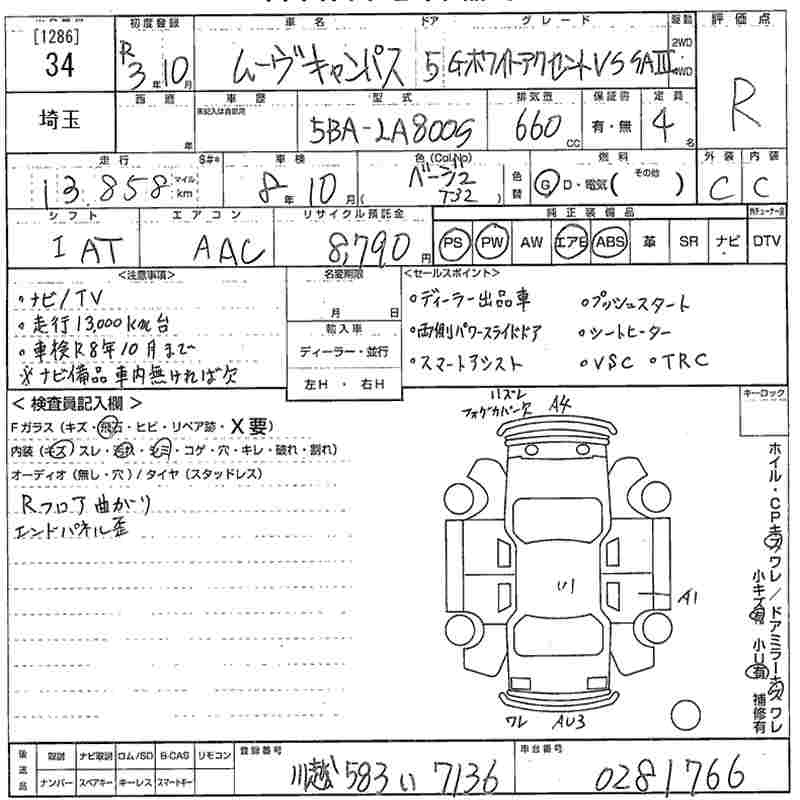 [1286]
34
埼玉
初度登録 車名 ドア グレード 駆動 評価点
R3年10月 ムーヴキャンバス 5 GホワイトアクセントVS SAⅢ 2WD 4WD R
車歴 型式 排気量 保証書 定員
年 未記入は自家用 5BA-LA800S 660cc 有・無 4名
走行 S#* 車検 色(Col.No) 色替 燃料 外装 内装
13,858 マイル km 8年10月 ベージュ T32 G D・電気( その他 ) C C
シフト エアコン リサイクル預託金 純正装備品
IAT AAC 8,790円 PS PW AW エアB ABS 革 SR ナビ DTV
<注意事項> 名変期限 <セールスポイント>
・ナビ/TV
・走行13,000km台
・車検R8年10月まで
※ナビ備品車内無ければ欠
月 日
輸入車
ディーラー・並行
左H・右H
・ディーラー出品車 ・プッシュスタート
・両側パワースライドドア ・シートヒーター
・スマートアシスト ・VSC ・TRC
<検査員記入欄>
Fガラス(キズ・飛石・ヒビ・リペア跡・X要)
内装(キズ スレ・汚れ・シミ・コゲ・穴・キレ・破れ・割れ)
オーディオ(無し・穴)/タイヤ(スタッドレス)
Rフロア曲がり
エンドパネル歪
ハズレ
フォグカバー欠 A4
U1
A1
ワレ AU3
キーロック
ホイル・CPキズ/ワレ/ドアミラーキズ/ワレ
小キズ有 小U有 補修有
後送品 取説 ナビ取説 ロム/SD B-CAS リモコン
ナンバー スペアキー キーレス スマートキー
登録番号 川越 583 い 7136
車台番号 0281766